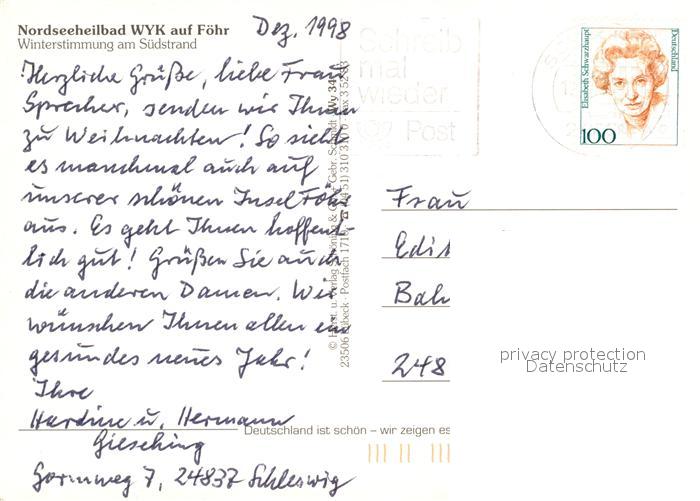 Nordseeheilbad WYK auf Föhr
Winterstimmung am Südstrand
Dez. 1998
Herzliche Grüße, liebe Frau
Sprecher, senden wir Ihnen
zu Weihnachten! So sieht
es manchmal auch auf
unserer schönen Insel Föhr
aus. Es geht Ihnen hoffent-
lich gut! Grüßen Sie auch
die anderen Damen. Wir
wünschen Ihnen allen ein
gesundes neues Jahr!
Ihre
u. Hermann
Giesching
7, 24837 Schleswig
Deutschland ist schön – wir zeigen es
23506 Lübeck · Postfach 1719
Schreib
mal
wieder
Post
Elisabeth Schwarzhaupt
Deutschland
100
Frau
Edit
Bah
248
privacy protection
Datenschutz